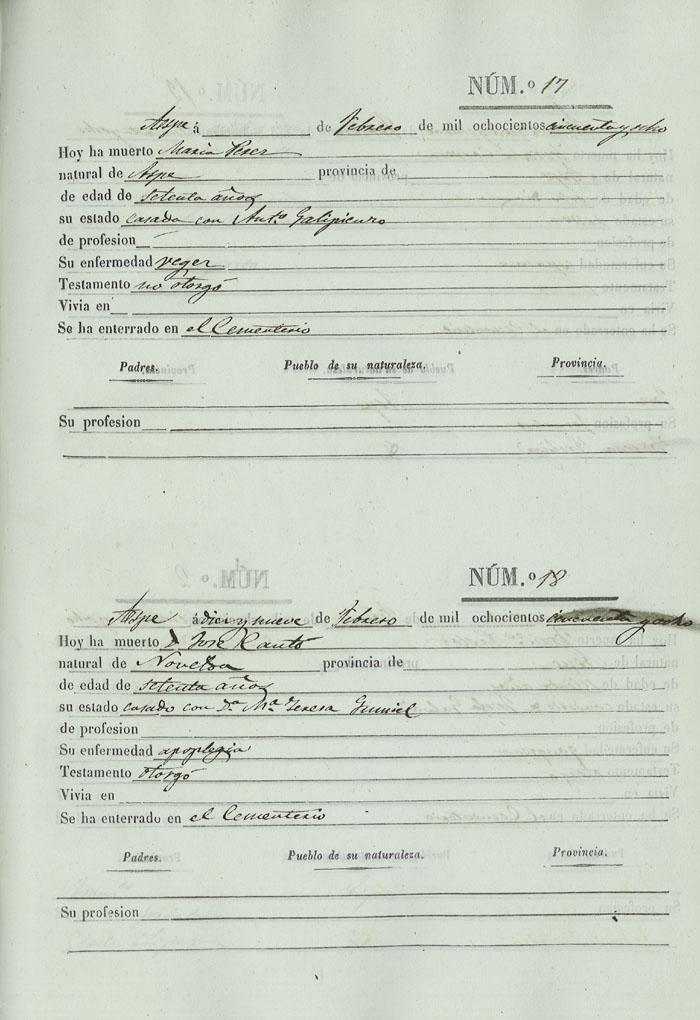 NÚM.º 17
Aspe á de Febrero de mil ochocientos cincuenta y ocho
Hoy ha muerto Maria Perez
natural de Aspe provincia de
de edad de Setenta años
su estado casada con Ant.º Galipienzo
de profesion
Su enfermedad vegez
Testamento no otorgó
Vivia en
Se ha enterrado en el Cementerio
Padres. Pueblo de su naturaleza. Provincia.
Su profesion
NÚM.º 18
Aspe á diez y nueve de Febrero de mil ochocientos cincuenta y ocho
Hoy ha muerto D. José Cantó
natural de Novelda provincia de
de edad de Setenta años
su estado casado con D.ª M.ª Teresa
de profesion
Su enfermedad apoplegia
Testamento otorgó
Vivia en
Se ha enterrado en el Cementerio
Padres. Pueblo de su naturaleza. Provincia.
Su profesion